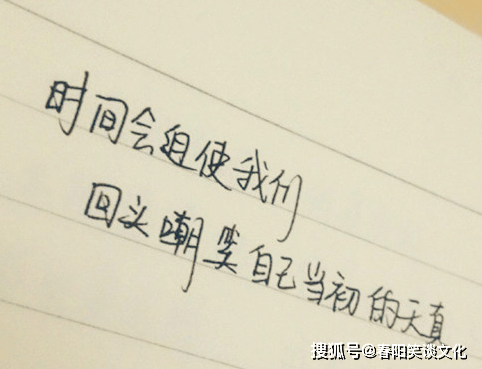 时间会迫使我们
回头嘲笑自己当初的天真
搜狐号@春阳笑谈文化